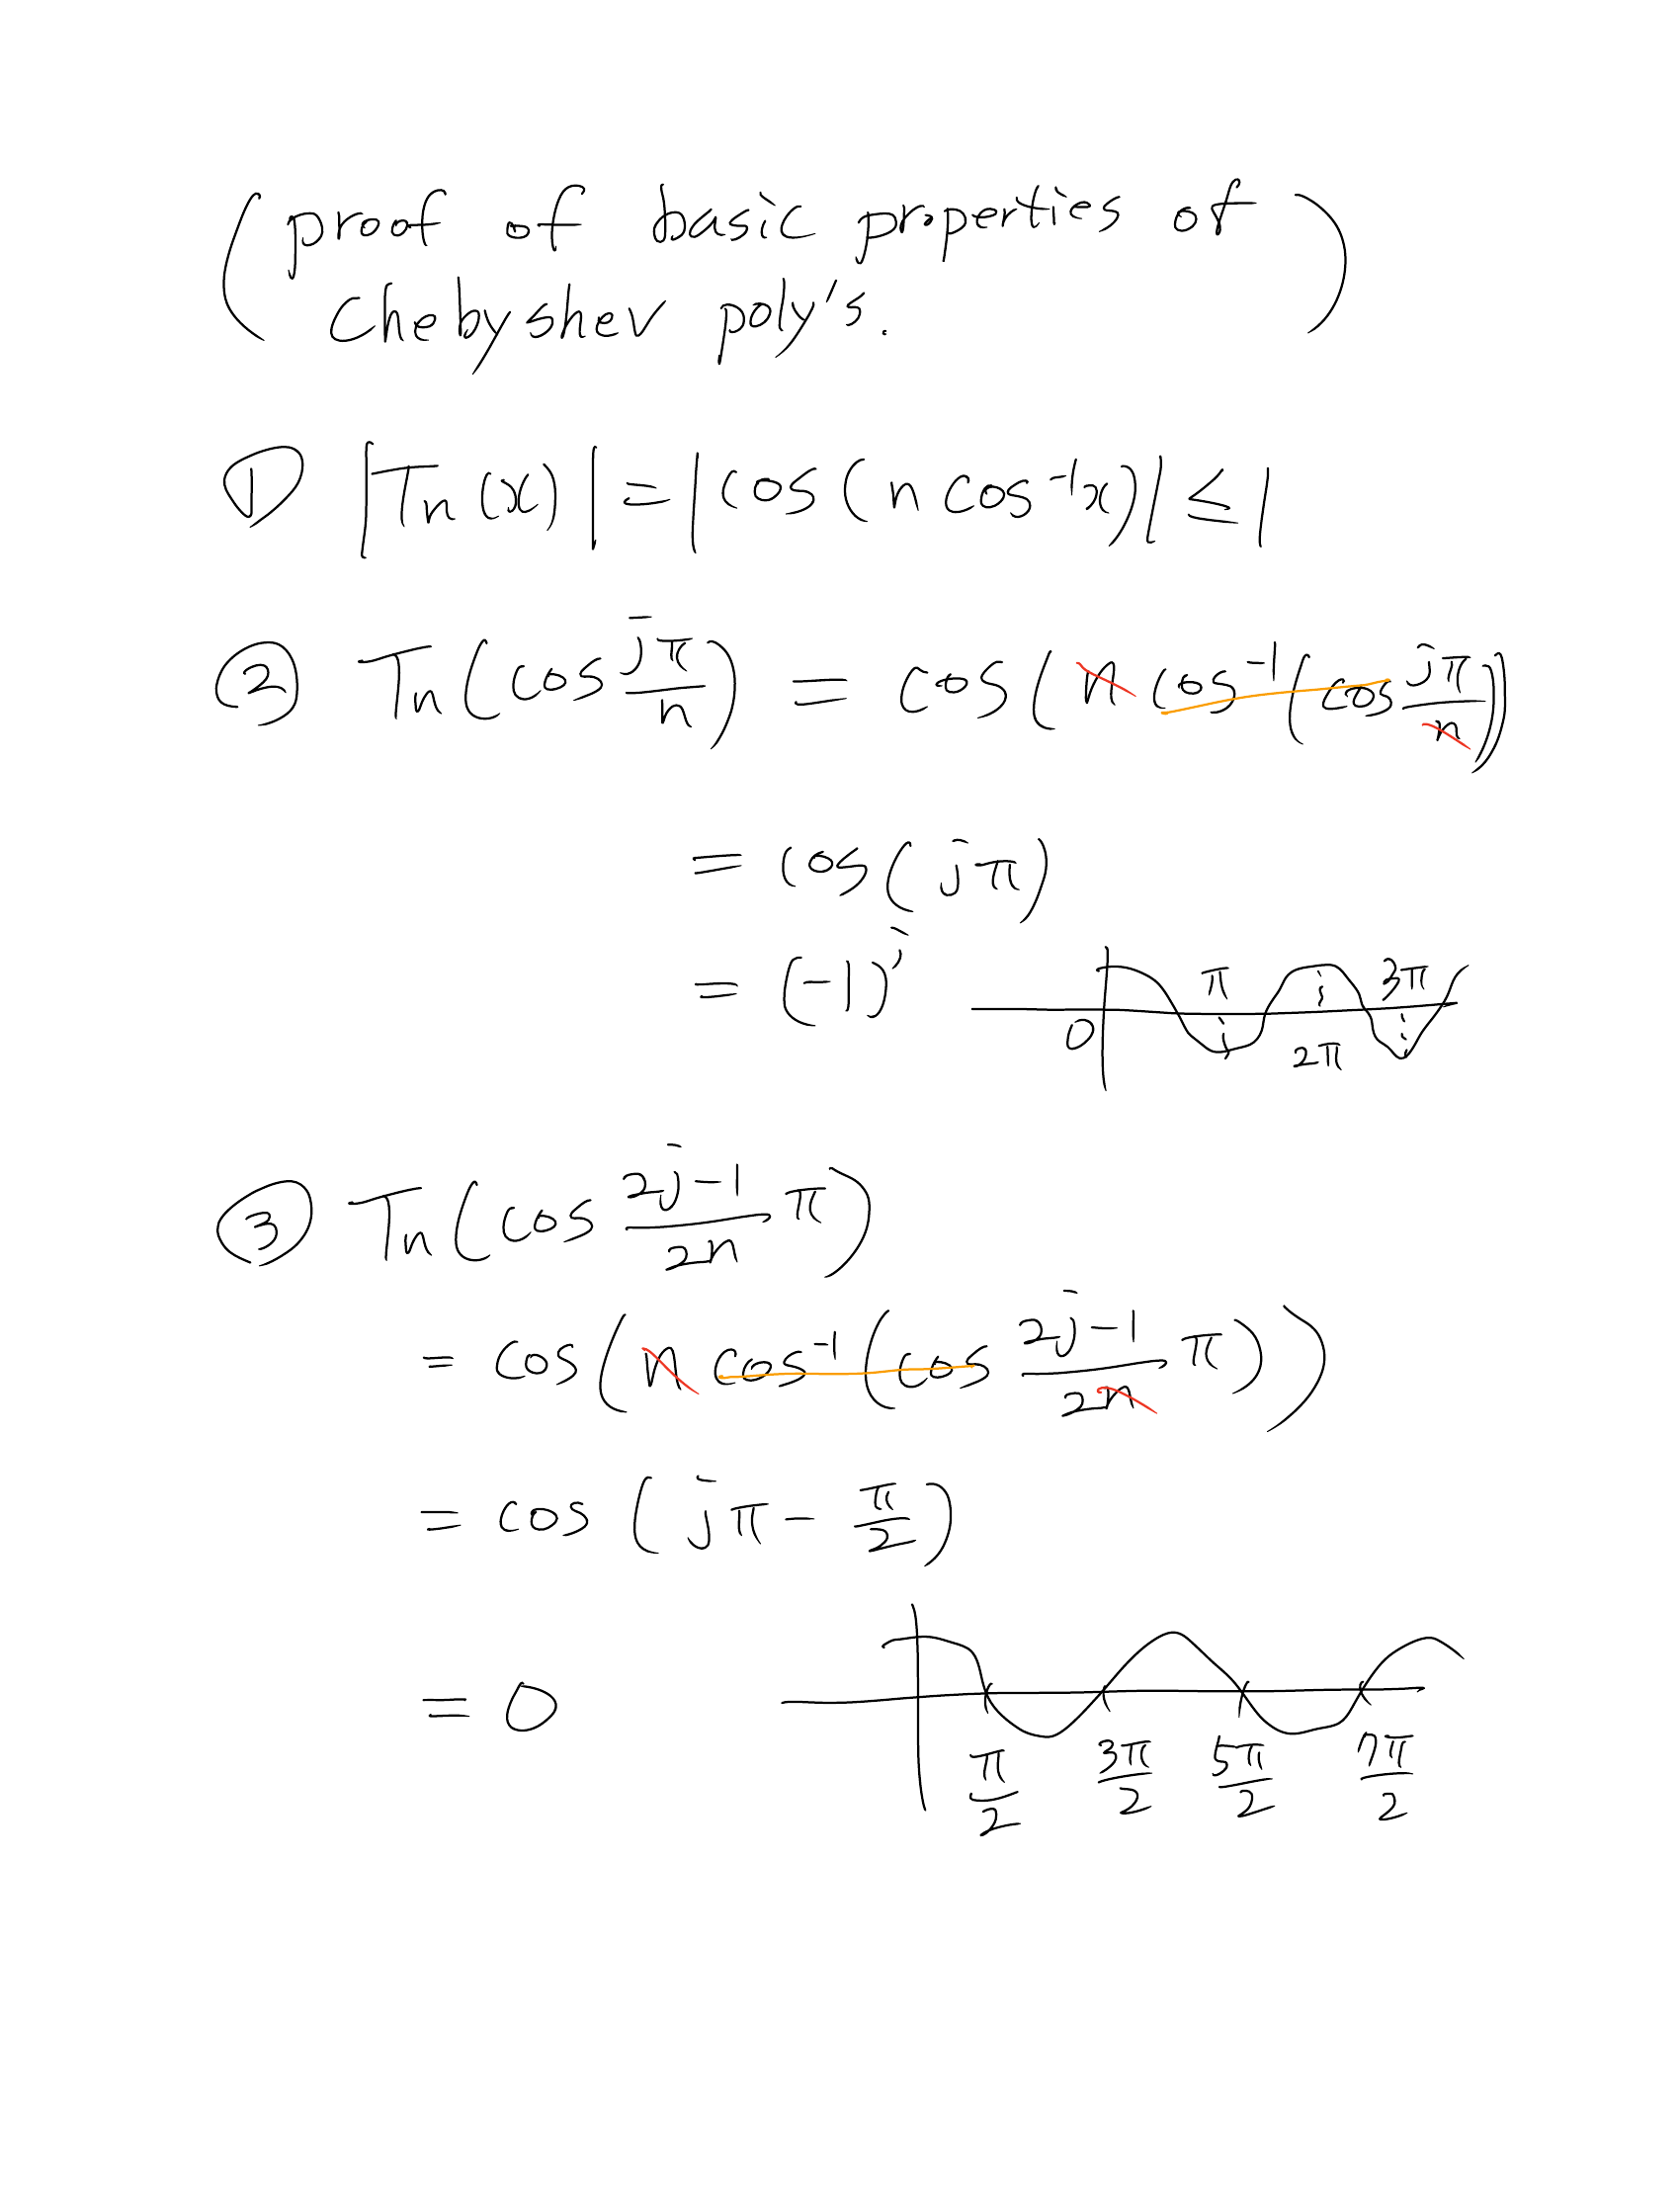 (proof of basic properties of
Chebyshev poly's.)
① |Tn(x)| = |cos(n cos⁻¹x)| ≤ 1
② Tn(cos jπ/n) = cos(n cos⁻¹(cos jπ/n))
= cos(jπ)
= (-1)^j
0 π 2π 3π
③ Tn(cos (2j-1)/(2n) π)
= cos(n cos⁻¹(cos (2j-1)/(2n) π))
= cos(jπ - π/2)
= 0
π/2 3π/2 5π/2 7π/2